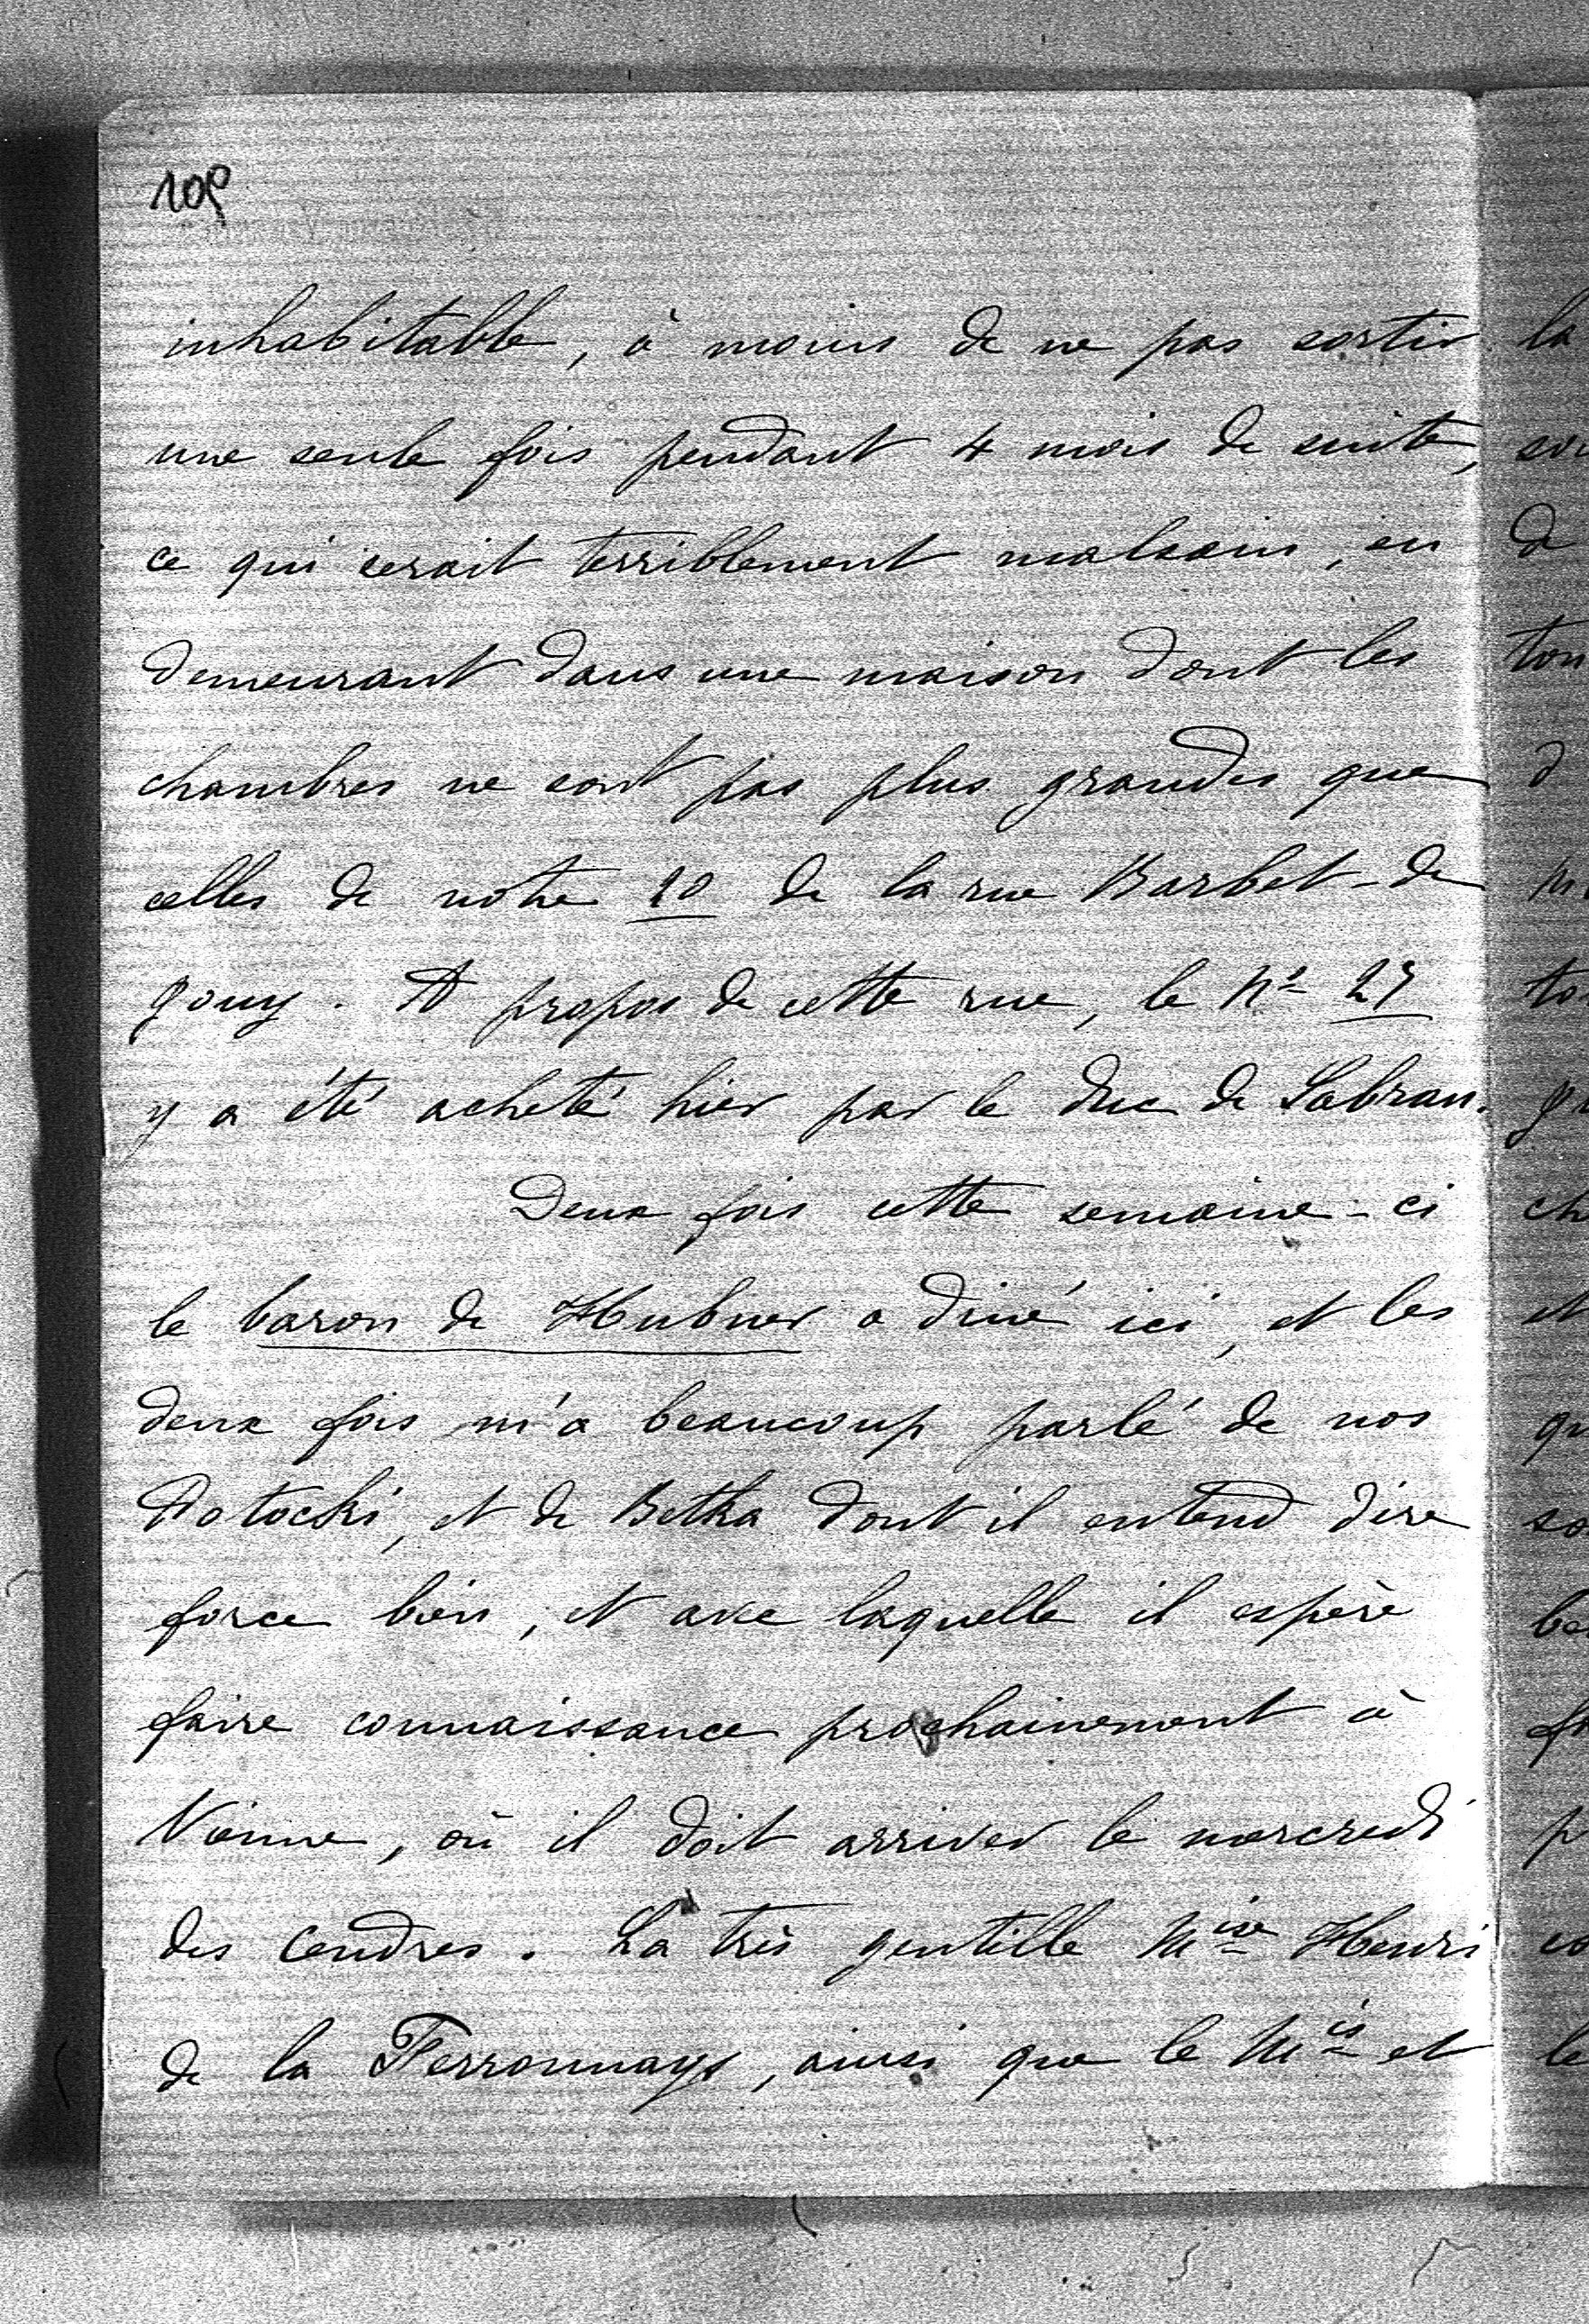 109
inhabitable, à moins de ne pas sortir
une seule fois pendant 4 mois de suite,
ce qui serait terriblement malsain, en
demeurant dans une maison dont les
chambres ne sont pas plus grandes que
celles de notre 10 de la rue Barbet-de
Jouy. A propos de cette rue, le No
y a été acheté hier par le duc de Sabran.
Deux fois cette semaine-ci
le baron de Hubner a diné ici, et les
deux fois m'a beaucoup parlé de nos
Potocki, et de Betka dont il entend dire
force bien, et avec laquelle il espère
faire connaissance prochainement à
Vienne, où il doit arriver le mercredi
des Cendres. La très gentille Mise Henri
de la Ferronnays, ainsi que le Mis et